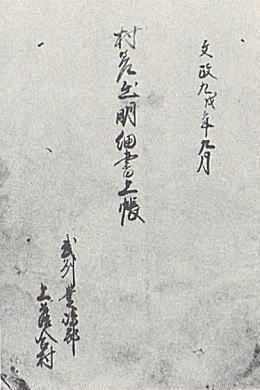 文政九戌年九月
村差出明細書上帳
武州 豊嶋郡
上落合村